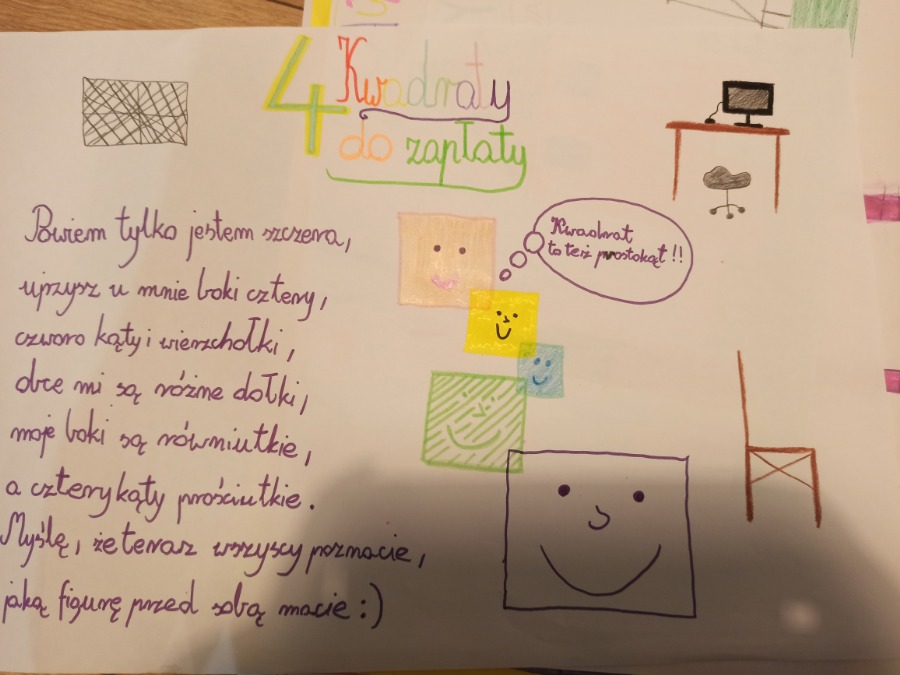 4 Kwadraty
do zapłaty
Powiem tylko jestem szczera,
ujrzysz u mnie boki cztery,
czworo kąty i wierzchołki,
obce mi są różne dołki,
moje boki są równiutkie,
a cztery kąty prościutkie.
Myślę, że teraz wszyscy poznacie,
jaką figurę przed sobą macie :)
Kwadrat
to też prostokąt !!